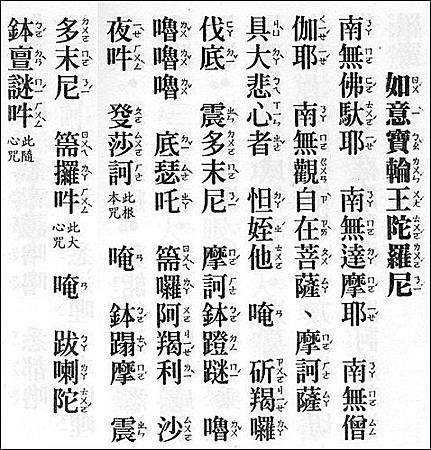 如意寶輪王陀羅尼
南無佛馱耶　南無達摩耶　南無僧
伽耶　南無觀自在菩薩、摩訶薩
具大悲心者　怛姪他　唵　斫羯囉
伐底　震多末尼　摩訶鉢蹬謎　嚕
嚕嚕嚕　底瑟吒　篅囉阿羯利　沙
夜吽　癹莎訶 此根本咒　唵　鉢蹋摩　震
多末尼　篅攞吽 此大心咒　唵　跋喇陀
鉢亶謎吽 此隨心咒